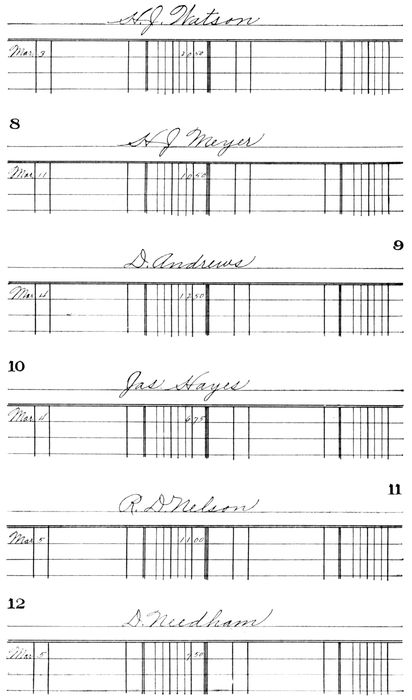 H. J. Watson
Mar 3 20 50
8
H J Meyer
Mar 11 10 50
9
D. Andrews
Mar 4 12 50
10
Jas Hayes
Mar 4 6 75
11
R. D. Nelson
Mar 5 11 00
12
D. Needham
Mar 5 7 50